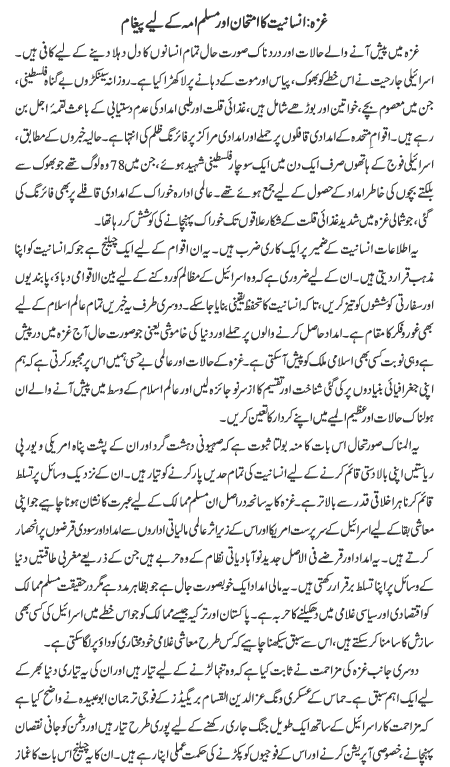 غزہ: انسانیت کا امتحان اور مسلم امہ کے لیے پیغام
غزہ میں پیش آنے والے حالات اور دردناک صورت حال تمام انسانوں کا دل دہلا دینے کے لیے کافی ہیں۔
اسرائیلی جارحیت نے اس خطے کو بھوک، پیاس اور موت کے دہانے پر لا کھڑا کیا ہے۔ روزانہ سینکڑوں بے گناہ فلسطینی،
جن میں معصوم بچے، خواتین اور بوڑھے شامل ہیں، غذائی قلت اور طبی امداد کی عدم دستیابی کے باعث لقمۂ اجل بن
رہے ہیں۔ اقوام متحدہ کے امدادی قافلوں پر حملے اور امدادی مراکز پر فائرنگ ظلم کی انتہا ہے۔ حالیہ خبروں کے مطابق،
اسرائیلی فوج کے ہاتھوں صرف ایک دن میں ایک سو چار فلسطینی شہید ہوئے، جن میں 78 وہ لوگ تھے جو بھوک سے
بلکتے بچوں کی خاطر امداد کے حصول کے لیے جمع ہوئے تھے۔ عالمی ادارہ خوراک کے امدادی قافلے پر بھی فائرنگ کی
گئی، جو شمالی غزہ میں شدید غذائی قلت کے شکار علاقوں تک خوراک پہنچانے کی کوشش کر رہا تھا۔
یہ اطلاعات انسانیت کے ضمیر پر ایک کاری ضرب ہیں۔ یہ ان اقوام کے لیے ایک چیلنج ہے جو کہ انسانیت کو اپنا
مذہب قرار دیتی ہیں۔ ان کے لیے ضروری ہے کہ وہ اسرائیل کے مظالم کو روکنے کے لیے بین الاقوامی دباؤ، پابندیوں
اور سفارتی کوششوں کو تیز کریں، تاکہ انسانیت کا تحفظ یقینی بنایا جا سکے۔ دوسری طرف یہ خبریں تمام عالم اسلام کے لیے
بھی غور و فکر کا مقام ہے۔ امداد حاصل کرنے والوں پر حملے اور دنیا کی خاموشی یعنی جو صورت حال آج غزہ میں در پیش
ہے وہی نوبت کسی بھی اسلامی ملک کو پیش آ سکتی ہے۔ غزہ کے حالات اور عالمی بے حسی ہمیں اس پر مجبور کرتی ہے کہ ہم
اپنی جغرافیائی بنیادوں پر کی گئی شناخت اور تقسیم کا از سر نو جائزہ لیں اور عالم اسلام کے وسط میں پیش آنے والے ان
ہولناک حالات اور عظیم المیے میں اپنے کردار کا تعین کریں۔
یہ المناک صورتحال اس بات کا منہ بولتا ثبوت ہے کہ صہیونی دہشت گرد اور ان کے پشت پناہ امریکی و یورپی
ریاستیں اپنی بالا دستی قائم کرنے کے لیے انسانیت کی تمام حدیں پار کرنے کو تیار ہیں۔ ان کے نزدیک وسائل پر تسلط
قائم کرنا ہر اخلاقی قدر سے بالاتر ہے۔ غزہ کا یہ سانحہ دراصل ان مسلم ممالک کے لیے عبرت کا نشان ہونا چاہیے جو اپنی
معاشی بقا کے لیے اسرائیل کے سرپرست امریکا اور اس کے زیر اثر عالمی مالیاتی اداروں سے امداد اور سودی قرضوں پر انحصار
کرتے ہیں۔ یہ امداد اور قرضے فی الاصل جدید نو آبادیاتی نظام کے وہ حربے ہیں جن کے ذریعے مغربی طاقتیں دنیا
کے وسائل پر اپنا تسلط برقرار رکھتی ہیں۔ یہ مالی امداد ایک خوبصورت جال ہے جو بظاہر مدد ہے مگر در حقیقت مسلم ممالک
کو اقتصادی اور سیاسی غلامی میں دھکیلنے کا حربہ ہے۔ پاکستان اور ترکیہ جیسے ممالک کو جو اس خطے میں اسرائیل کی کسی بھی
سازش کا سامنا کر سکتے ہیں، اس سے سبق سیکھنا چاہیے کہ کس طرح معاشی غلامی خود مختاری کو داؤ پر لگا سکتی ہے۔
دوسری جانب غزہ کی مزاحمت نے ثابت کیا ہے کہ وہ تنہا لڑنے کے لیے تیار ہیں اور ان کی یہ تیاری دنیا بھر کے
لیے ایک اہم سبق ہے۔ حماس کے عسکری ونگ عز الدین القسام بریگیڈز کے فوجی ترجمان ابو عبیدہ نے واضح کیا ہے
کہ مزاحمت کار اسرائیل کے ساتھ ایک طویل جنگ جاری رکھنے کے لیے پوری طرح تیار ہیں اور دشمن کو جانی نقصان
پہنچانے، خصوصی آپریشن کرنے اور اس کے فوجیوں کو پکڑنے کی حکمت عملی اپنا رہے ہیں۔ ان کا یہ چیلنج اس بات کا غماز